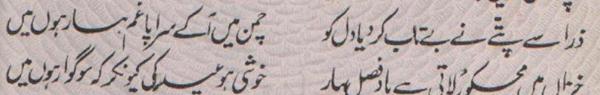 ذرا سے پتے نے بے تاب کر دیا دل کو چمن میں آکے سراپا غم بہار ہوں میں
خزاں میں مجھ کو رلاتی ہے یاد فصل بہار خوشی ہو عید کی کیونکر کہ سوگوار ہوں میں